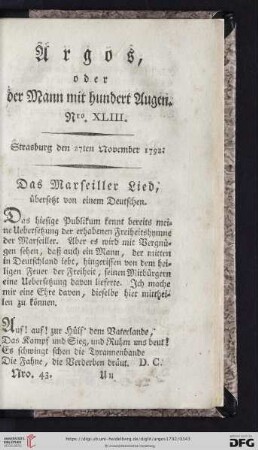 Argos,
oder
der Mann mit hundert Augen.
Nro. XLIII.
Strasburg den 27ten November 1792.
Das Marseiller Lied,
übersetzt von einem Deutschen.
Das hiesige Publikum kennt bereits mei-
ne Uebersetzung der erhabenen Freiheitshymne
der Marseiller. Aber es wird mit Vergnü-
gen sehen, daß auch ein Mann, der mitten
in Deutschland lebt, hingerissen von dem hei-
ligen Feuer der Freiheit, seinen Mitbürgern
eine Uebersetzung davon lieferte. Ich mache
mir eine Ehre davon, dieselbe hier mitthei-
len zu können.
Auf! auf! zur Hülf' dem Vaterlande,
Das Kampf und Sieg, und Ruhm uns beut!
Es schwingt schon die Tyrannenbande
Die Fahne, die Verderben dräut. D. C.
Nro. 43. Uu
https://digi.ub.uni-heidelberg.de/diglit/argos1792/0343
© Universitätsbibliothek Heidelberg
gefördert durch die
DFG